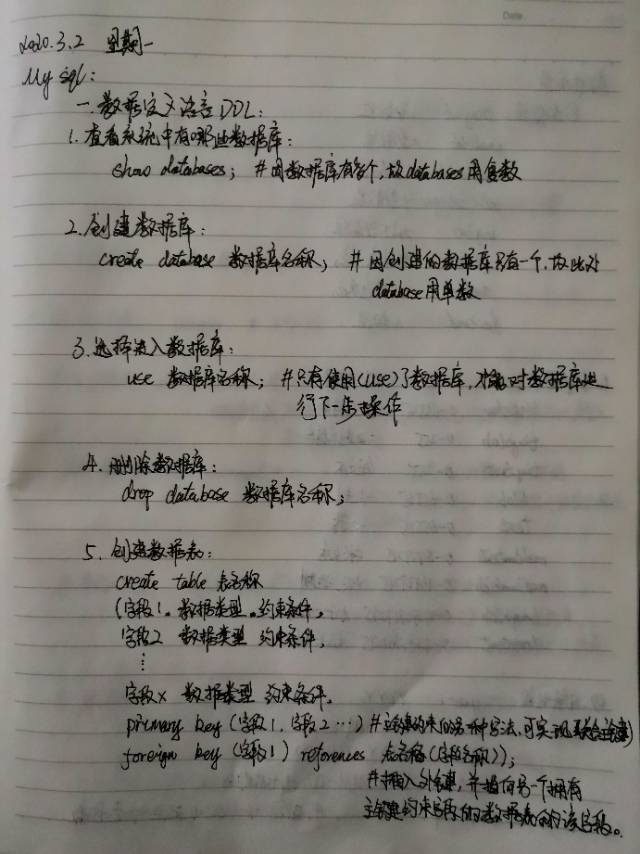 2020.3.2 星期一
My sql:
一.数据定义语言DDL:
1.查看系统中有哪些数据库:
show databases; #因数据库有多个,故databases用复数
2.创建数据库:
create database 数据库名称; #因创建的数据库只有一个,故此处
database用单数
3.选择进入数据库:
use 数据库名称; #只有使用(use)了数据库,才能对数据库进
行下一步操作
4.删除数据库:
drop database 数据库名称;
5.创建数据表:
create table 表名称
(字段1 数据类型 约束条件,
字段2 数据类型 约束条件,
⋮
字段x 数据类型 约束条件,
primary key (字段1,字段2…) #主键约束的另一种写法,可实现联合主键
foreign key (字段1) references 表名称(字段名称));
#插入外键,并指向另一个拥有
主键约束字段的数据表的该字段。